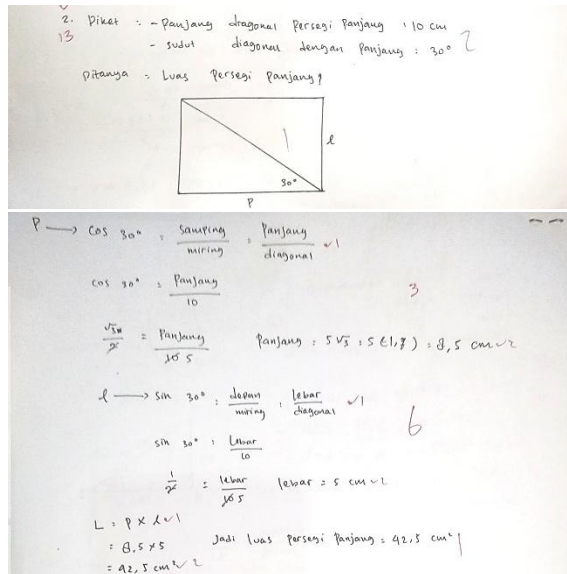 2. Diket : - Panjang diagonal Persegi Panjang : 10 cm
13 - sudut diagonal dengan Panjang : 30° 2
Ditanya = Luas Persegi Panjang?
1
l
30°
P
P → cos 30° = samping/miring = Panjang/diagonal ✓1
cos 30° = Panjang/10
3
√3/2 = Panjang/10 5 Panjang = 5√3 = 5 (1,7) = 8,5 cm ✓2
l → sin 30° = depan/miring = lebar/diagonal ✓1
6
sin 30° = Lebar/10
1/2 = lebar/10 5 lebar = 5 cm ✓2
L = P x l ✓1
= 8,5 x 5 Jadi luas Persegi Panjang = 42,5 cm² 1
= 42,5 cm² ✓ 2